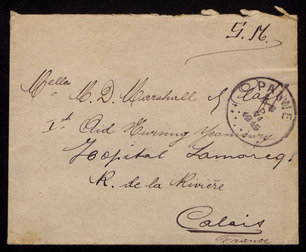 S.M.
Mella M. D. Marshall
1st Aid Nursing Yeomanry
Hospital Lamarcq
R. de la Rivière
Calais
France
PANNE